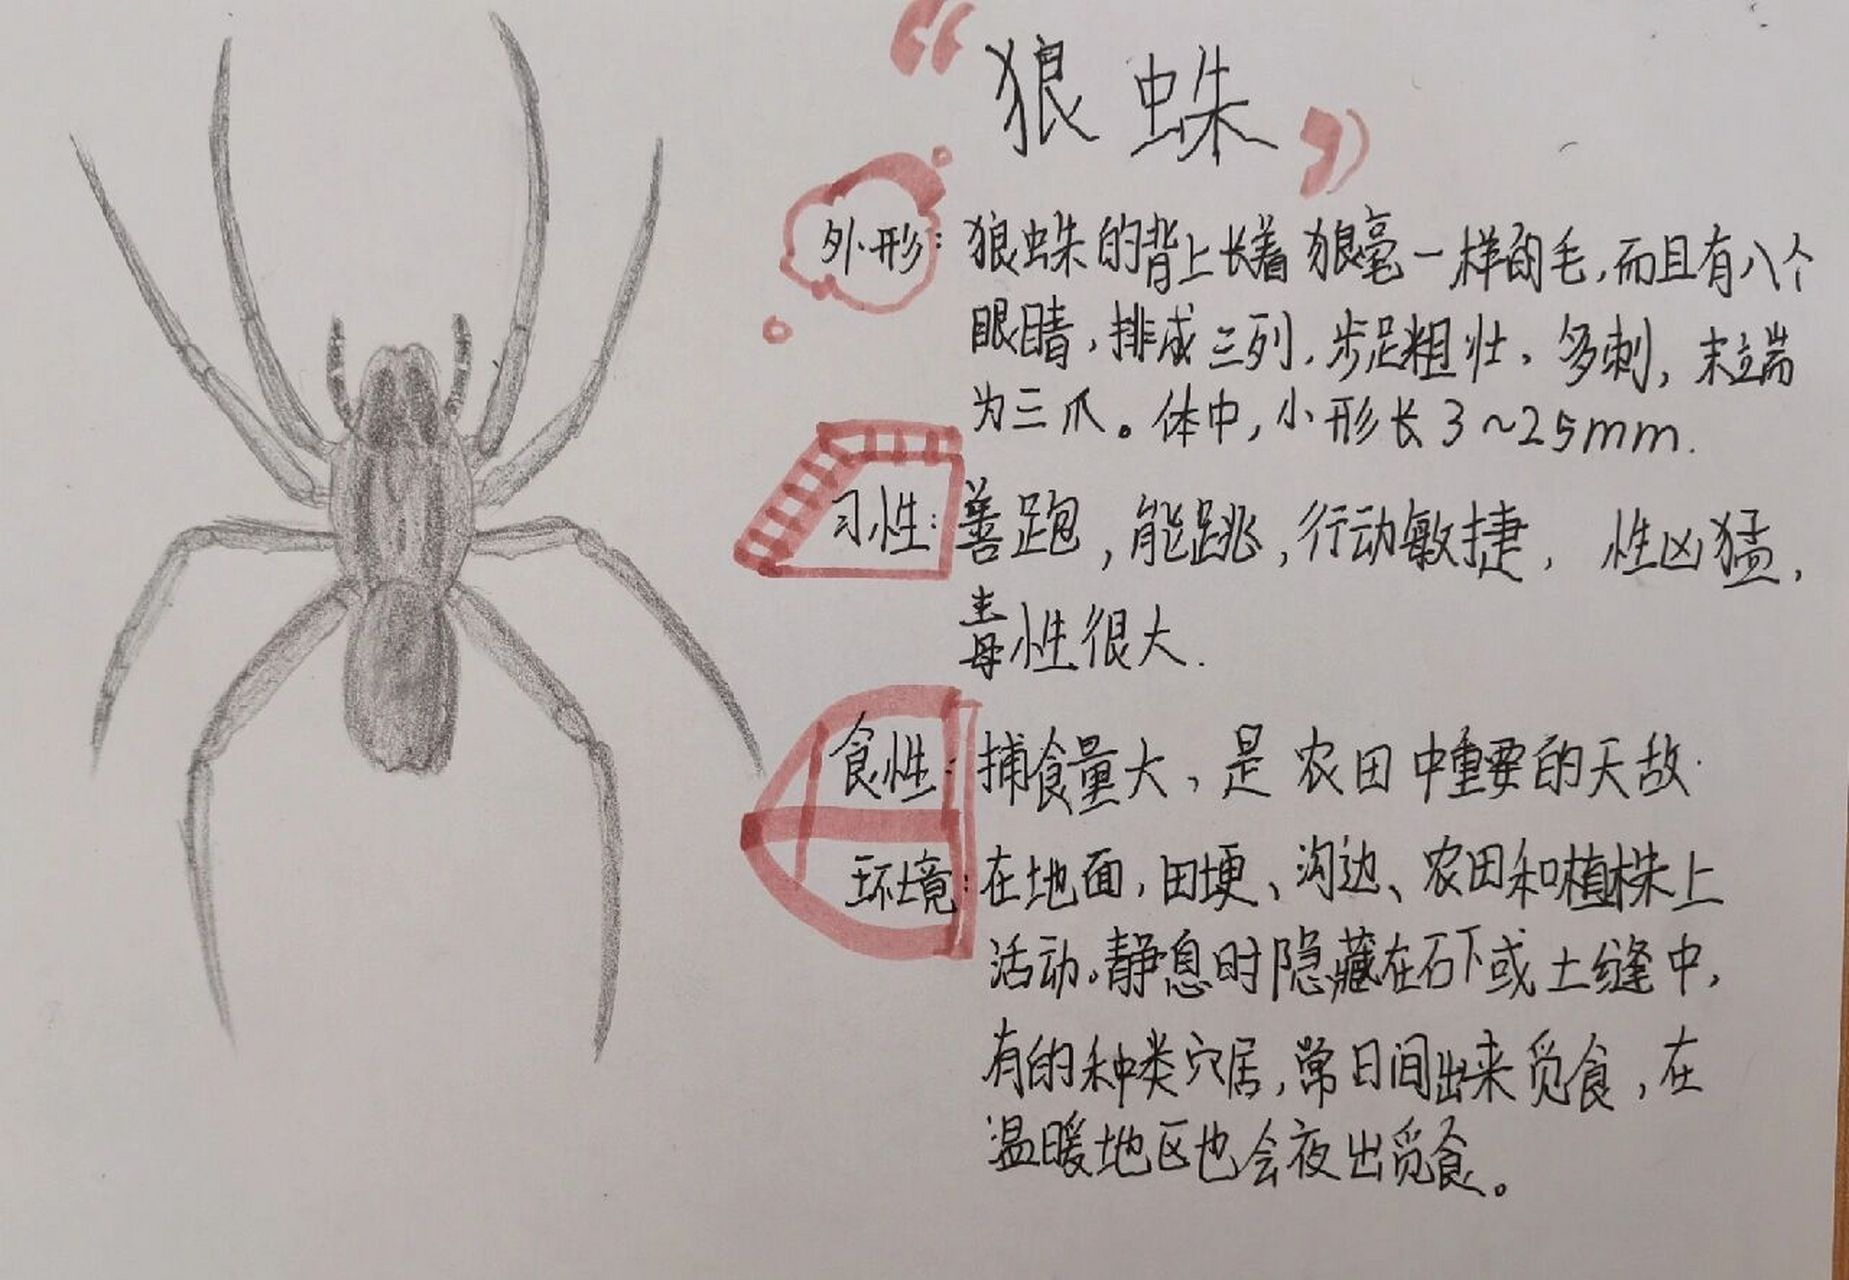 “狼蛛”
外形:狼蛛的背上长着狼毫一样的毛,而且有八个
眼睛,排成三列,步足粗壮,多刺,末端
为三爪。体中,小形长3~25mm.
习性:善跑,能跳,行动敏捷,性凶猛,
毒性很大.
食性:捕食量大,是农田中重要的天敌.
环境:在地面,田埂、沟边、农田和植株上
活动。静息时隐藏在石下或土缝中,
有的种类穴居,常日间出来觅食,在
温暖地区也会夜出觅食。